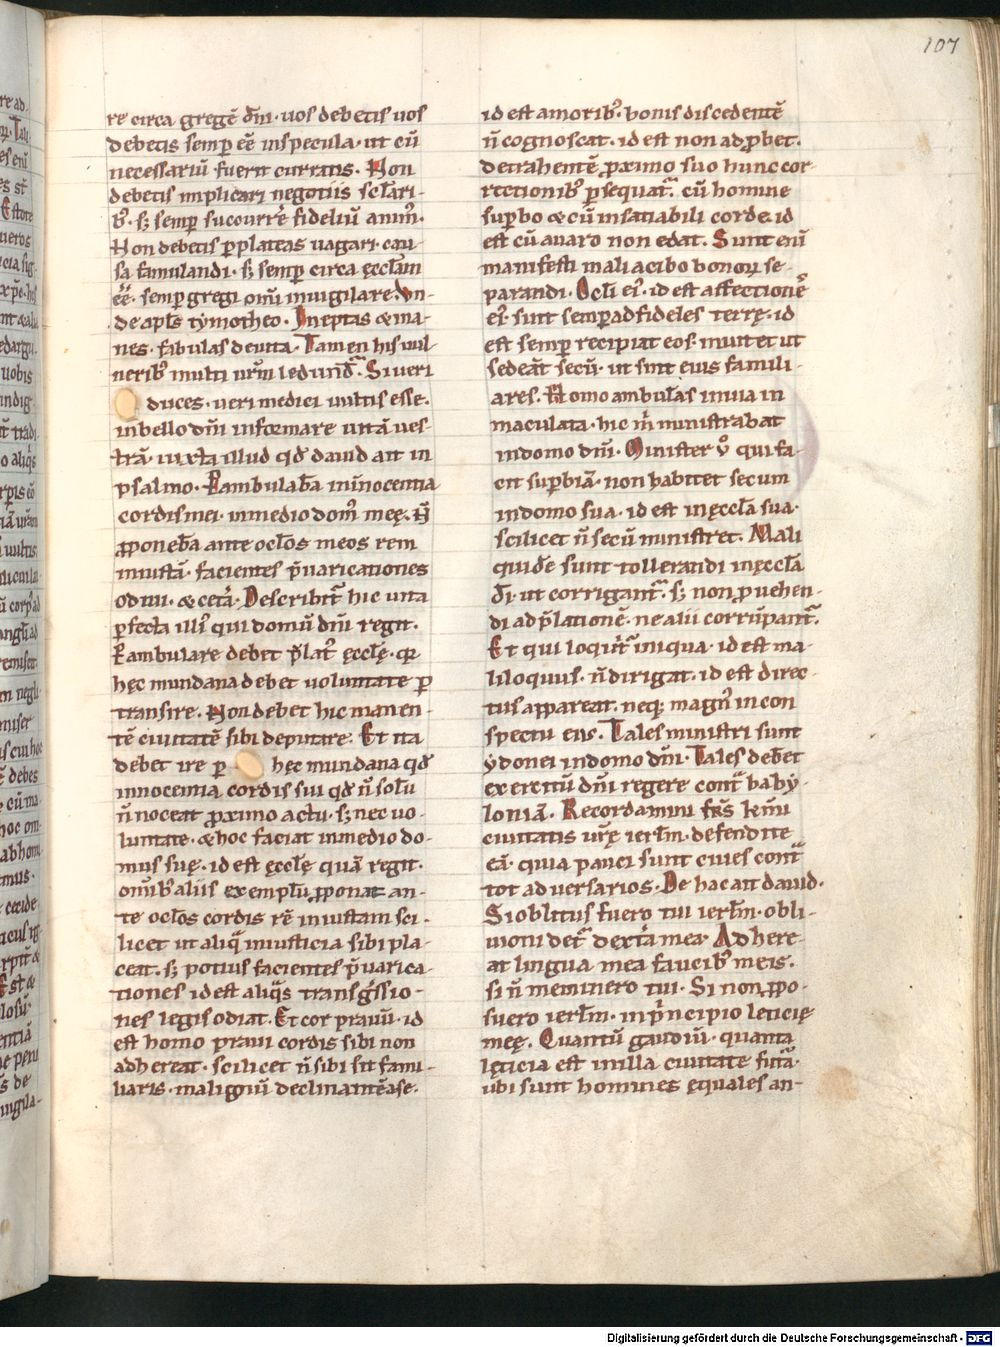 107
re circa gregē dn̄i · uos debetis uos
debetis semp eē inspecula · ut cū
necessariū fuerit curratis. Non
debetis implicari negotiis sclari-
bꝰ · sꝫ semp sucourrē fideliū anim̄ ·
Non debetis p plateas uagari · cau-
sa famulandi · sꝫ semp circa ęccl̄am
eē · semp gregi om̄i inuigilare · Vn-
de apl̄s tymotheo · Ineptas & ina-
nes · fabulas deuita · Tamen his uil-
neribꝰ multi ur̄m ledunt̄. Si ueri
duces · ueri medici uultis esse ·
inbello dn̄i informare uitā ues-
trā · iuxta illud qd̄ dauid ait in
psalmo · Pambulab̄a in innocentia
cordis mei · inmedio dom⁹ meę · N̄
ꝓponeb̄a ante ocl̄os meos rem
iniustā · facientes p̄uaricationes
odiui · & cet̄a · Describit̄ hic uita
pfecta illi⁹ qui domū dn̄i regit ·
Pambulare debet p̄lat⁹ ęccl̄ę · qr
hęc mundana debet uoluntate p
transire · Non debet hic manen-
tē ciuitatē sibi deputare · Et ita
debet ire p hęc mundana qd̄
innocentia cordis sui qd̄ n̄ solū
n̄ noceat ꝓximo actu · sꝫ nec uo-
luntate · & hoc faciat inmedio do-
mus suę · id est ęccl̄ę quā regit ·
omībꝰ aliis exemplū ꝓponat an-
te ocl̄os cordis rē iniustam sci-
licet ut aliq̄ iniusticia sibi pla-
ceat · sꝫ potius facientes p̄uarica-
tiones id est aliq̄s transḡssio-
nes legis odiat · Et cor prauū · id
est homo praui cordis sibi non
adhereat · scilicet n̄ sibi sit fami-
liaris · malignū declinantē ase ·
id est amoribꝰ bonis discedentē
n̄ cognoscat · id est non adꝓbet ·
detrahentē ꝓximo suo hunc cor-
rectionibꝰ psequat̄ · cū homine
supbo & cū insatiabili corde · id
est cū auaro non edat · Sunt eni
manifesti mali acibo bonoꝝ se-
parandi · Ocl̄i ei⁹ · id est affectionē
ei⁹ · sunt semp ad fideles terrę · id
est semp recipiat eos · inuitet ut
sedeāt secū · ut sint eius famili-
ares · Homo ambulās inuia in
maculata · hic m̄ ministrabat
indomo dn̄i · Minister ŏ qui fa-
cit supbiā · non habitet secum
indomo sua · id est in ęccl̄a sua ·
scilicet n̄ secū ministret · Mali
quidē sunt tollerandi in ęccl̄a
d̄i · ut corrigant̄ · sꝫ non ꝓuehen-
di ad p̄lationē · ne alii corrūpant̄.
Et qui loquit̄ iniqua · id est ma-
liloquus · n̄ dirigat · id est direc-
tus appareat · neqꝫ magn⁹ in con
spectu eius · Tales ministri sunt
ydonei in domo dn̄i · Tales debet
exercitū dn̄i regere cont̄ baby-
loniā · Recordamini fr̄s k̄mi
ciuitatis ur̄ę ierl̄m · defendite
eā · quia pauci sunt ciues cont̄
tot aduersarios · De hac ait dauid ·
Si oblitus fuero tui ierl̄m · obli-
uioni det̄ dext̄a mea · Adhere-
at lingua mea faucibꝰ meis ·
si n̄ meminero tui · Si non ꝓpo-
suero ierl̄m · in p̄ncipio leticię
meę · Quantū gaudiū · quanta
lęticia est in illa ciuitate fut̄a ·
ubi sunt homines ęquales an-
Digitalisierung gefördert durch die Deutsche Forschungsgemeinschaft - DFG